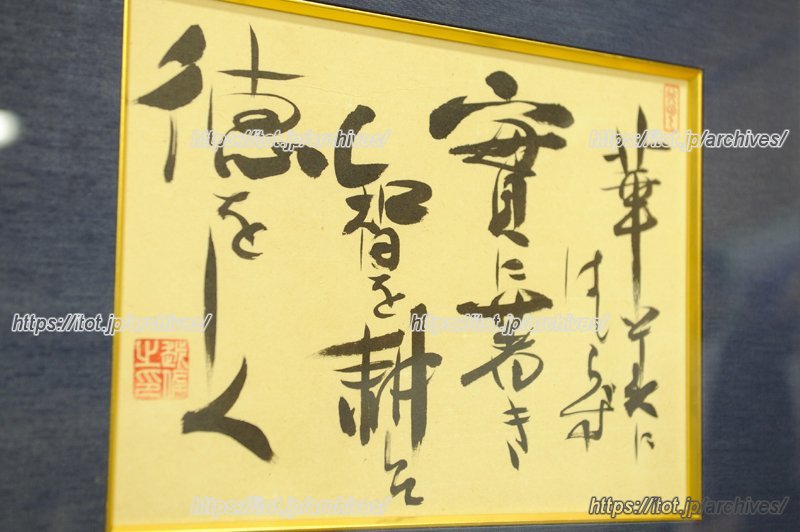 華美に
はしらず
實に着き
智を耕し
徳をしく
https://itot.jp/archives/
https://itot.jp/archives/
https://itot.jp/archives/
https://itot.jp/archives/
https://itot.jp/archives/
https://itot.jp/archives/